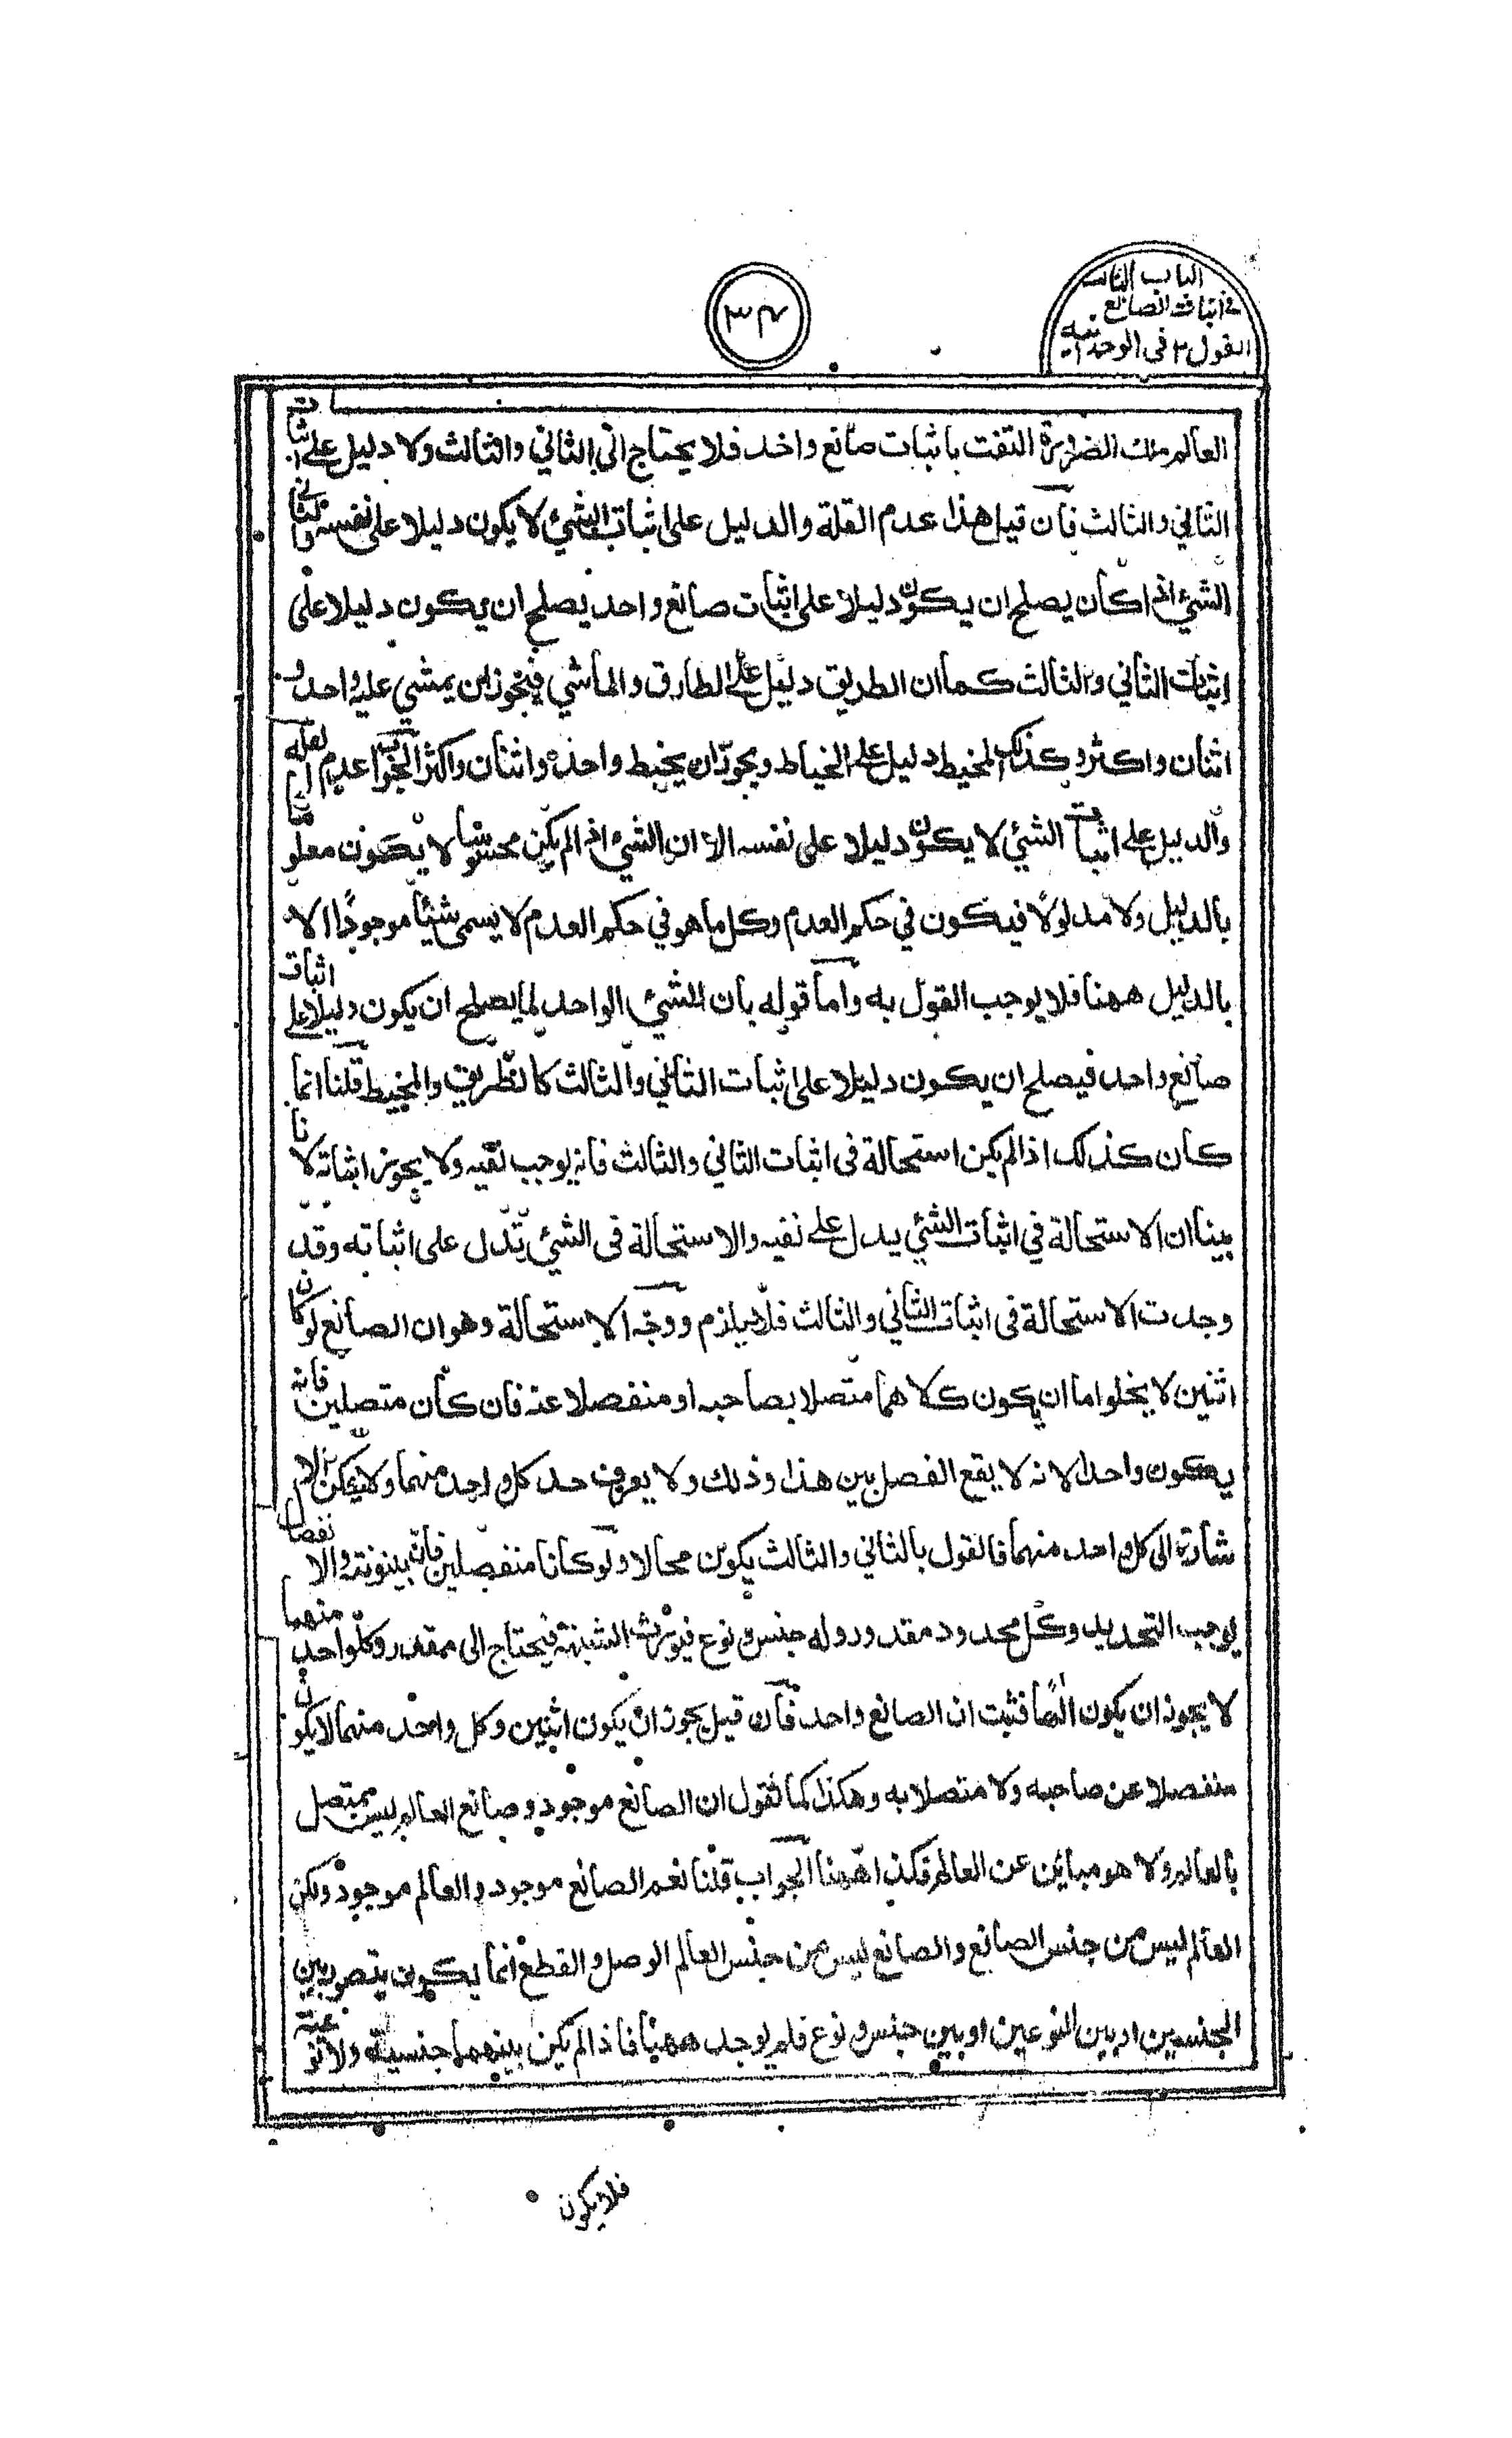 الباب الثالث
في اثبات الصانع
القول ٢ في الوحدانية
٣٤
العالم وتلك الضرورة التفت باثبات صانع واحد فلا يحتاج الى الثاني والثالث ولا دليل على اثبات
الثاني والثالث فان قيل هذا عدم القلة والدليل على اثبات الشئ لا يكون دليلا على نفسه والثاني
الشئ اذا كان يصلح ان يكون دليلا على اثبات صانع واحد يصلح ان يكون دليلا على
اثبات الثاني والثالث كما ان الطريق دليل على الطارق والماشي فيجوز ان يمشي عليه واحد و
اثنان واكثر وكذلك المخيط دليل على الخياط ويجوز ان يخيط واحد واثنان واكثر الجواب عدم
والدليل على اثبات الشئ لا يكون دليلا على نفسه الا ان الشئ اذا لم يكن محسوسا لا يكون معلو
بالدليل ولا مدلولا فيكون في حكم العدم وكل ما هو في حكم العدم لا يسمى شيئا موجودا الا
بالدليل ههنا فلا يوجب القول به واما قوله بان الشئ الواحد لما يصلح ان يكون دليلا على اثبات
صانع واحد فيصلح ان يكون دليلا على اثبات الثاني والثالث كالطريق والمخيط قلنا انما
كان كذلك اذا لم يكن استحالة في اثبات الثاني والثالث فانه يوجب نفيه ولا يجوز اثباته لانا
بينا ان الاستحالة في اثبات الشئ يدل على نفيه والاستحالة في الشئ تدل على اثباته وقد
وجدت الاستحالة في اثبات الثاني والثالث فلا يلزم ووجه الاستحالة وهو ان الصانع لوكان
اثنين لا يخلوا اما ان يكون كلاهما متصلا بصاحبه او منفصلا عنه فان كان متصلين فانه
يكون واحدا لانه لا يقع الفصل بين هذا وذلك ولا يعرف حد كل واحد منهما ولا يمكن الا
شارة الى كل واحد منهما فالقول بالثاني والثالث يكون محالا ولو كانا منفصلين فان بينونته والانفصال
يوجب التحديد وكل محدود مقدور وله جنس ونوع فيورث الشبهة فيحتاج الى مقدر وكل واحد منهما
لا يجوز ان يكون الها فثبت ان الصانع واحد فان قيل يجوز ان يكون اثنين وكل واحد منهما لا يكون
منفصلا عن صاحبه ولا متصلا به وهكذا كما نقول ان الصانع موجود وصانع العالم ليس بمتصل
بالعالم ولا هو مباين عن العالم فكذا ههنا الجواب قلنا نعم الصانع موجود والعالم موجود ولكن
العالم ليس من جنس الصانع والصانع ليس من جنس العالم الوصل والقطع انما يكون يتصور بين
الجنسين او بين النوعين او بين جنس ونوع فلم يوجد ههنا فاذا لم يكن بينهما جنسية ولا نوعية
فلا يكون